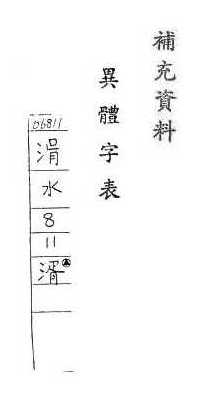 補充資料
異體字表
06811
水
8
11
湑